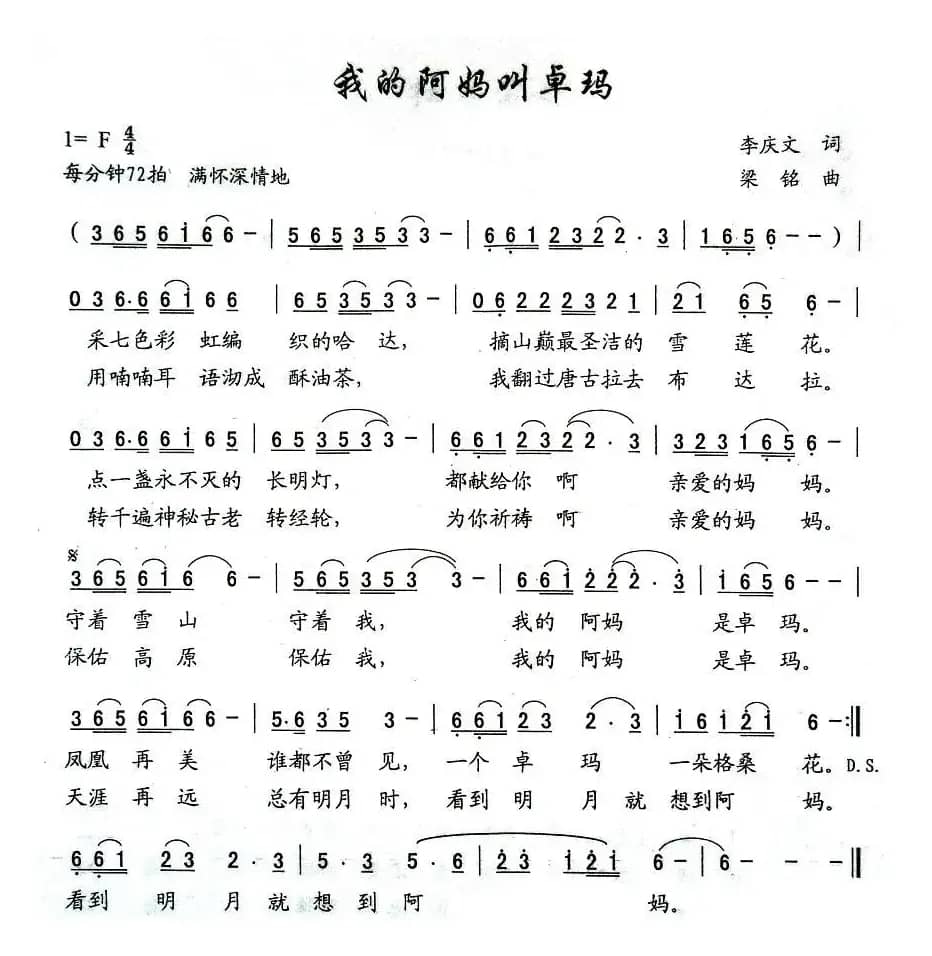 我的阿妈叫卓玛
1= F 4/4
李庆文 词
每分钟72拍 满怀深情地
梁 铭 曲
( 3 6 5 6 i 6 6 - | 5 6 5 3 5 3 3 - | 6 6 1 2 3 2 2 · 3 | 1 6 · 5 6 - - ) |
0 3 6 · 6 6 i 6 6 | 6 5 3 5 3 3 - | 0 6 2 2 2 3 2 1 | 2 1 6 5 6 - |
采七色彩 虹编 织的哈 达, 摘山巅最圣洁的 雪 莲 花。
用喃喃耳 语沏成 酥油茶, 我翻过唐古拉去 布 达 拉。
0 3 6 · 6 6 i 6 5 | 6 5 3 5 3 3 - | 6 6 1 2 3 2 2 · 3 | 3 2 3 1 6 5 6 - |
点一盏永不灭的 长明灯, 都献给你 啊 亲爱的妈 妈。
转千遍神秘古老 转经轮, 为你祈祷 啊 亲爱的妈 妈。
3 6 5 6 i 6 6 - | 5 6 5 3 5 3 3 - | 6 6 i 2 2 2 · 3 | i 6 5 6 - - |
守着 雪 山 守着 我, 我的 阿妈 是卓 玛。
保佑 高 原 保佑 我, 我的 阿妈 是卓 玛。
3 6 5 6 i 6 6 - | 5 · 6 3 5 3 - | 6 6 1 2 3 2 · 3 | i 6 i 2 i 6 - :‖
凤凰 再 美 谁都不曾 见, 一个 卓 玛 一朵格桑 花。D.S.
天涯 再 远 总有明月 时, 看到 明 月 就 想到阿 妈。
6 6 1 2 3 2 · 3 | 5 · 3 5 · 6 | 2 3 i 2 i 6 - | 6 - - - ‖
看到 明 月 就 想 到 阿 妈。